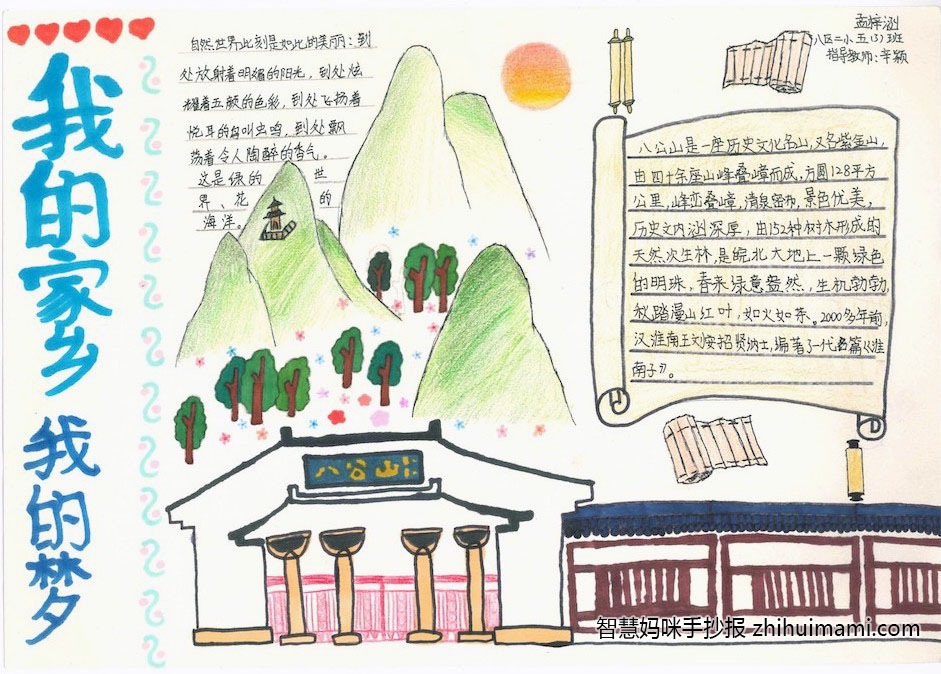 我的家乡
我的梦
自然世界此刻是如此的美丽：到
处放射着明媚的阳光，到处炫
耀着五颜的色彩，到处飞扬着
悦耳的鸟叫虫鸣，到处飘
荡着令人陶醉的香气。
这是绿的世
界、花的
海洋。
孟梓涵
八区二小五(3)班
指导教师：辛颖
八公山是一座历史文化名山，又名紫金山，
由四十余座山峰叠嶂而成，方圆128平方
公里，峰峦叠嶂，清泉密布，景色优美，
历史文内涵深厚，由152种树木形成的
天然次生林，是皖北大地上一颗绿色
的明珠，春来绿意盎然、生机勃勃，
秋踏漫山红叶，如火如荼。2000多年前，
汉淮南王刘安招贤纳士，编著了一代名篇《淮
南子》。
八公山
智慧妈咪手抄报 zhihuimami.com